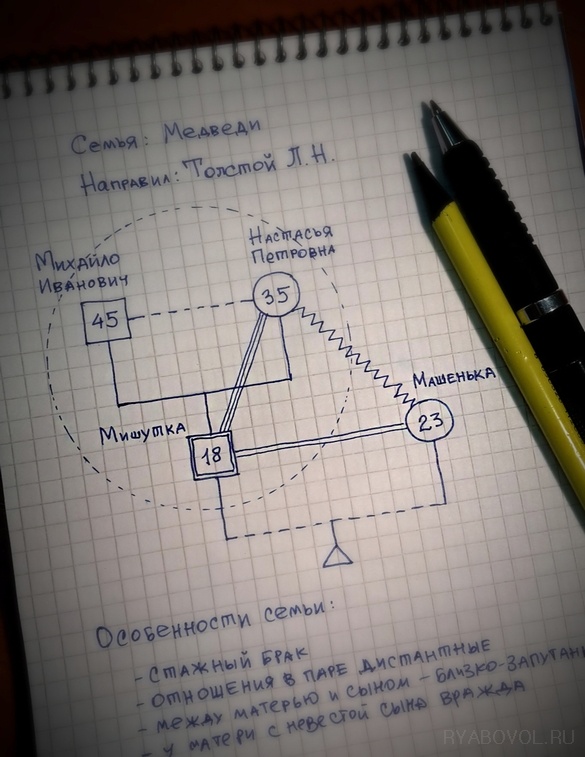 Семья: Медведи
Направил: Толстой Л.Н.
Михайло
Иванович
Настасья
Петровна
45
35
Машенька
23
Мишутка
18
Особенности семьи:
- стажный брак
- отношения в паре дистантные
- между матерью и сыном - близко-запутан
- у матери с невестой сына вражда
RYABOVOL.RU